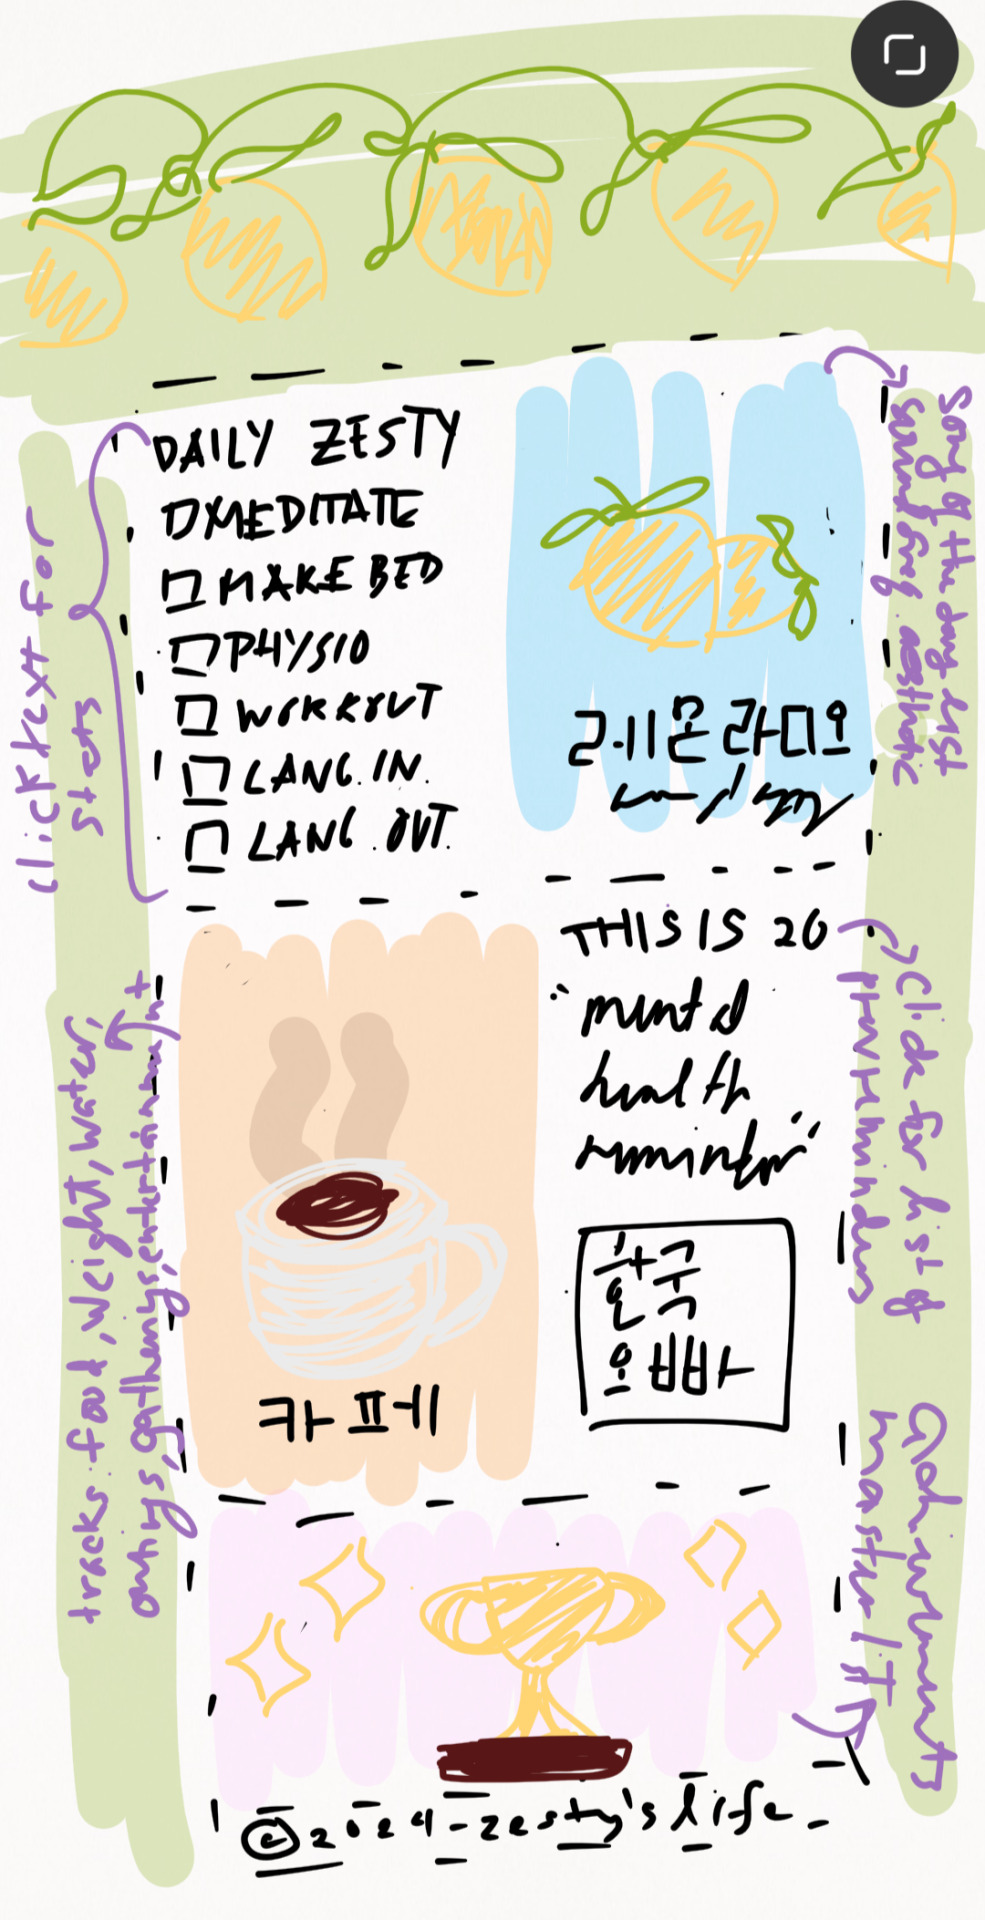 DAILY ZESTY
MEDITATE
MAKE BED
PHYSIO
WORKOUT
LANG. IN.
LANG. OUT.
click text for
stats
레몬 라디오
song of the day list
aesthetic
THIS IS 20
"mental
health
reminder"
click for list of
prev reminders
한국
오빠
카페
tracks: food, weight, water,
outings, gatherings, entertainment
achievements
master list
©2024-zesty's life